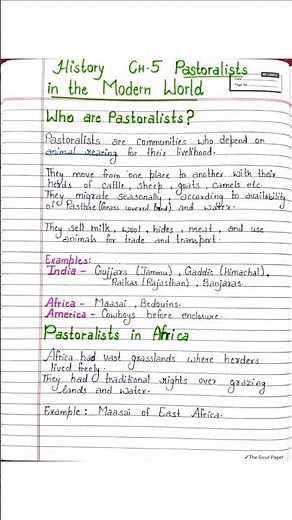 History Ch-5 Pastoralists
in the Modern World
Who are Pastoralists?
Pastoralists are communities who depend on
animal rearing for their livelihood.
They move from one place to another with their
herds of cattle, sheep, goats, camels etc.
They migrate seasonally, according to availability
of Pasture (Grass covered land) and water.
They sell milk, wool, hides, meat, and use
animals for trade and transport.
Examples:
India - Gujjars (Jammu), Gaddis (Himachal),
Raikas (Rajasthan), Banjaras.
Africa - Maasai, Bedouins.
America - Cowboys before enclosure.
Pastoralists in Africa
Africa had vast grasslands where herders
lived freely.
They had traditional rights over grazing
lands and water.
Example: Maasai of East Africa.
The Good Paper